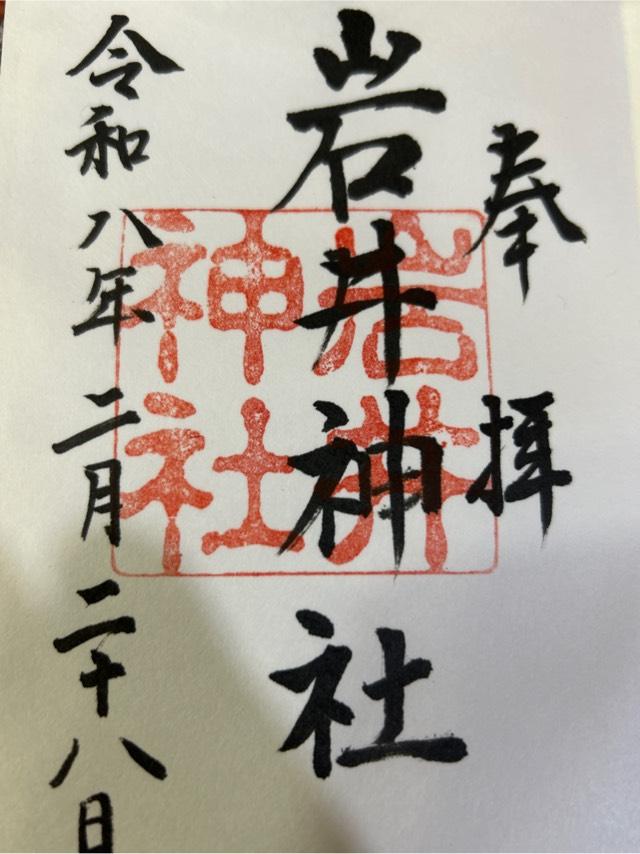 奉拝
岩井神社
岩井
神社
令和八年二月二十八日